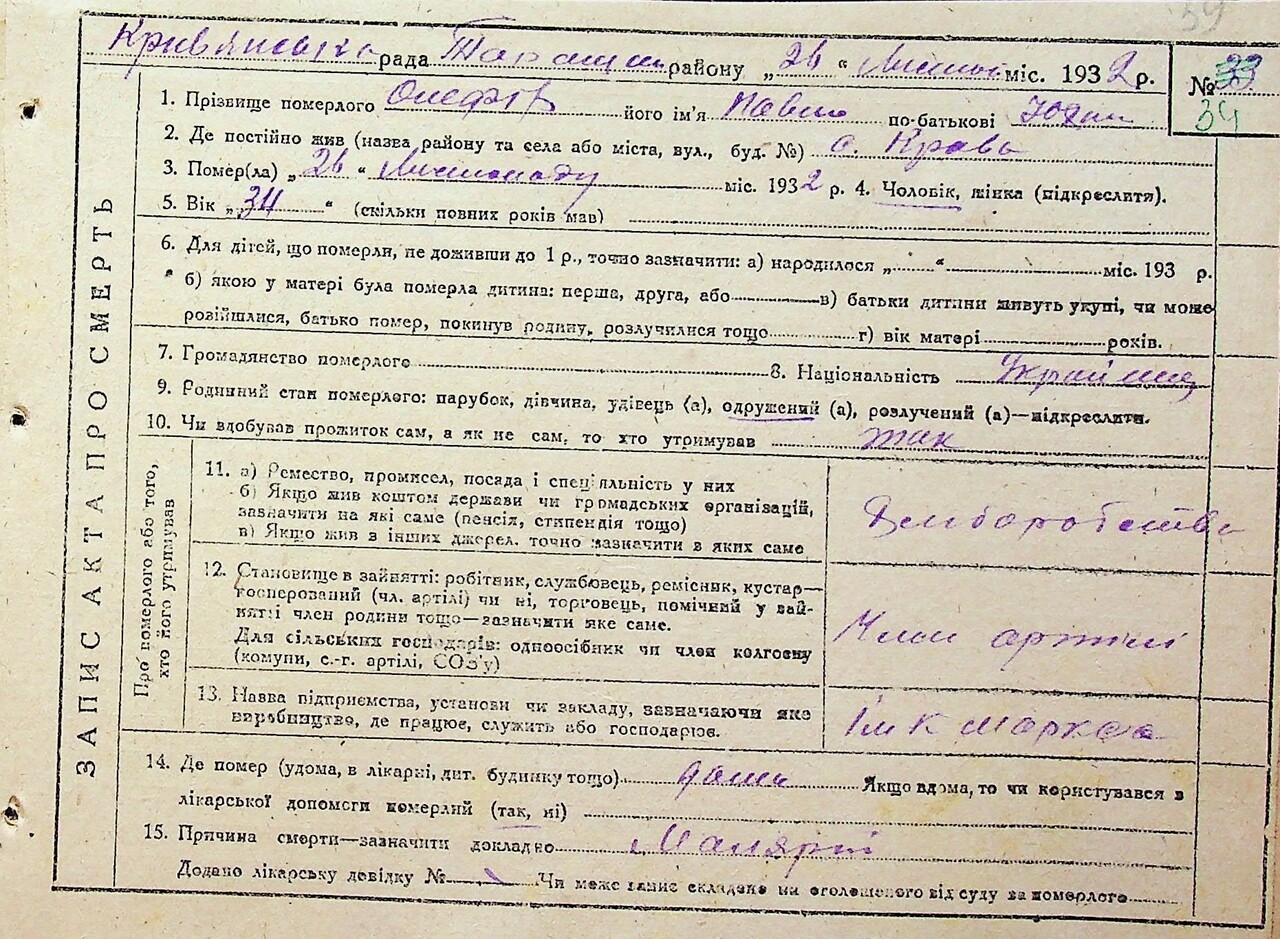 39
Кривянська рада Таращан району „26“ Листоп міс. 1932 р.
№ 33
34
ЗАПИС АКТА ПРО СМЕРТЬ
1. Прізвище померлого його ім'я Павло по-батькові
2. Де постійно жив (назва району та села або міста, вул., буд. №) с. Крива
3. Помер(ла) „26“ Листопаду міс. 1932 р. 4. Чоловік, жінка (підкреслити).
5. Вік „34“ (скільки повних років мав)
6. Для дітей, що померли, не доживши до 1 р., точно зазначити: а) народилося „ “ міс. 193 р.
б) якою у матері була померла дитина: перша, друга, або в) батьки дитини живуть укупі, чи може
розійшлися, батько помер, покинув родину, розлучилися тощо г) вік матері років.
7. Громадянство померлого 8. Національність Українц
9. Родинний стан померлого: парубок, дівчина, удівець (а), одружений (а), розлучений (а)—підкреслити.
10. Чи здобував прожиток сам, а як не сам, то хто утримував так
Про померлого або того,
хто його утримував
11. а) Ремество, промисел, посада і спеціяльність у них
б) Якщо жив коштом держави чи громадських організацій,
зазначити на які саме (пенсія, стипендія тощо)
в) Якщо жив з інших джерел, точно зазначити в яких саме
Хліборобство
12. Становище в зайнятті: робітник, службовець, ремісник, кустар—
коοперований (чл. артілі) чи ні, торговець, помічний у зай-
нятті член родини тощо—зазначити яке саме.
Для сільських господарів: одноосібник чи член колгоспу
(комуни, с.-г. артілі, СОЗ'у)
Член артілі
13. Назва підприємства, установи чи закладу, зазначаючи яке
виробництво, де працює, служить або господарює.
Ім К Маркса
14. Де помер (удома, в лікарні, дит. будинку тощо) дома Якщо вдома, то чи користувався з
лікарської допомоги померлий (так, ні)
15. Причина смерти—зазначити докладно Малярії
Додано лікарську довідку № Чи може запис складено на оголошеного від суду за померлого